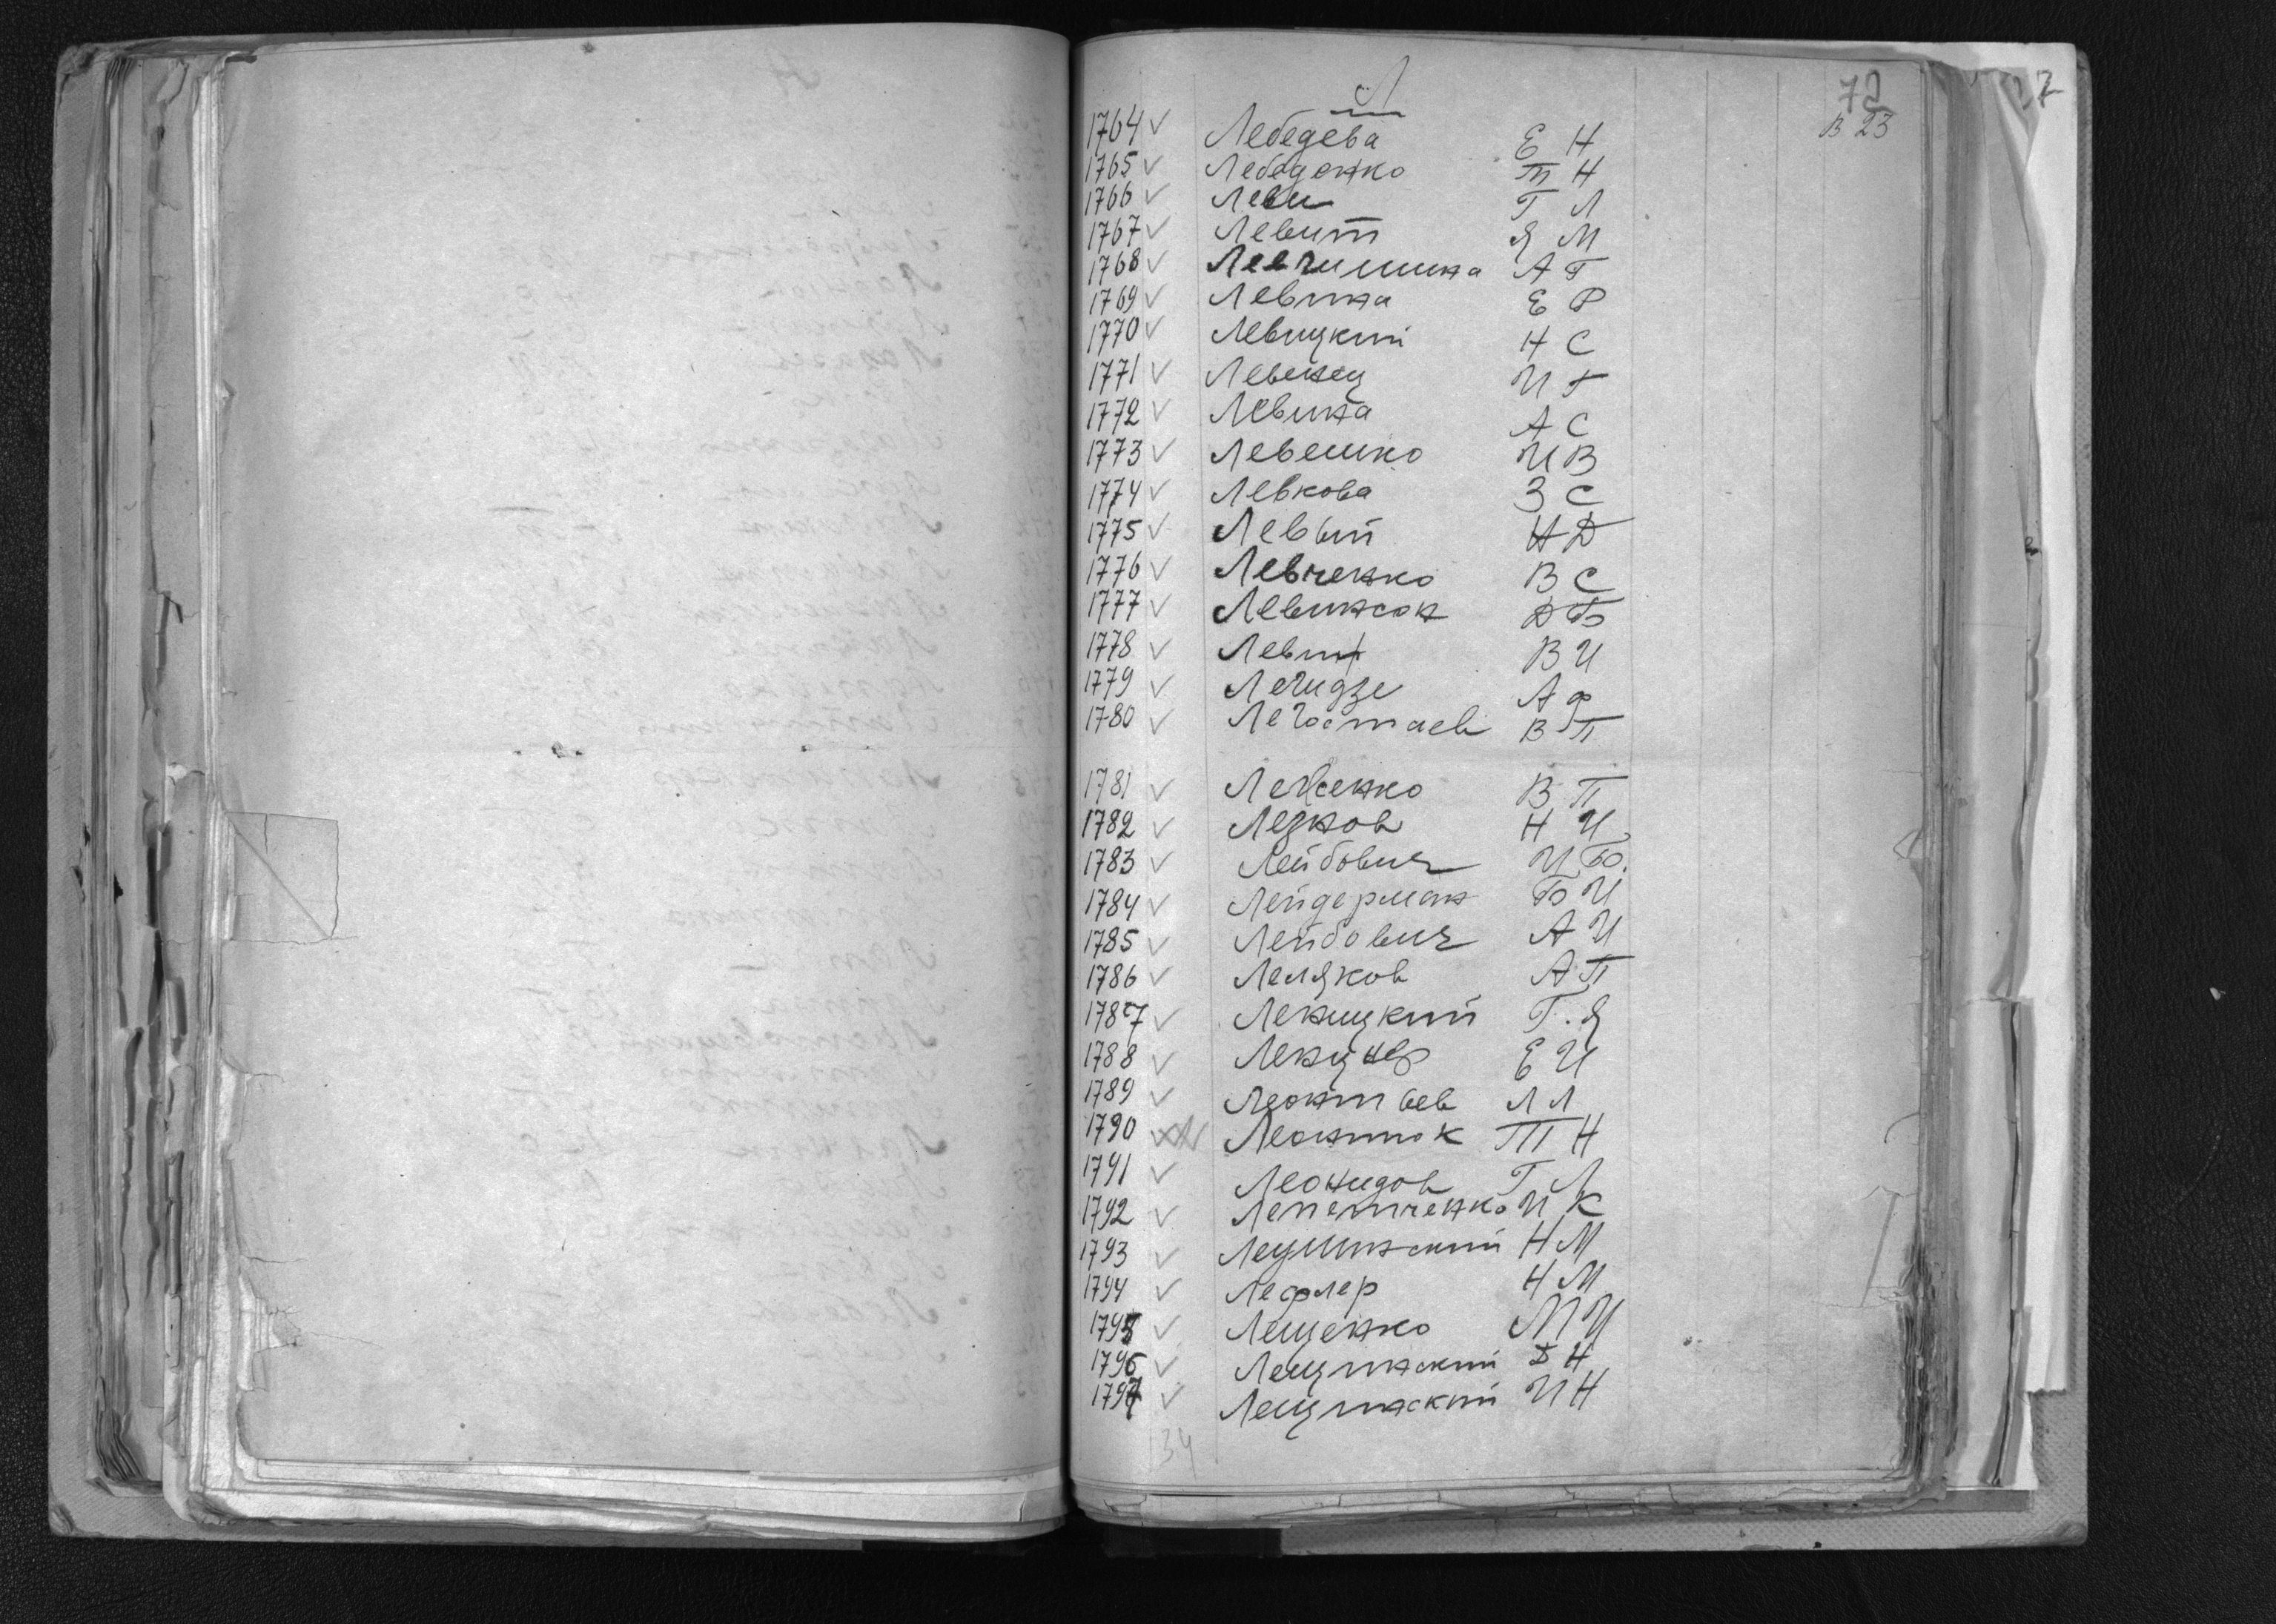 Л
72
В 23
1764 ✓ Лебедева Е Н
1765 ✓ Лебеденко Т Н
1766 ✓ Леви Г Л
1767 ✓ Левит Я М
1768 ✓ А Г
1769 ✓ Левина Е Р
1770 ✓ Левицкий Н С
1771 ✓ Левенец И Г
1772 ✓ Левина А С
1773 ✓ Левешко И В
1774 ✓ Левкова З С
1775 ✓ Левый Н Д
1776 ✓ Левченко В С
1777 ✓ Левинсон Д Б
1778 ✓ Левин В И
1779 ✓ Легидзе А Ф
1780 ✓ Легостаев В П
1781 ✓ Леженко В П
1782 ✓ Лезнов Н И
1783 ✓ Лейбович И Б.
1784 ✓ Лейдерман Б И
1785 ✓ Лейбович А И
1786 ✓ Леляков А П
1787 ✓ Леницкий Г. Я
1788 ✓ Ленцнер Е И
1789 ✓ Леонтьев Л Л
1790 Леонтюк Т Н
1791 ✓ Леонидов Г Л
1792 ✓ Лепетченко И К
1793 ✓ Н М
1794 ✓ Лефлер Н М
1795 ✓ Лещенко М И
1796 ✓ Лещинский Д Н
1797 ✓ Лещинский И Н
34